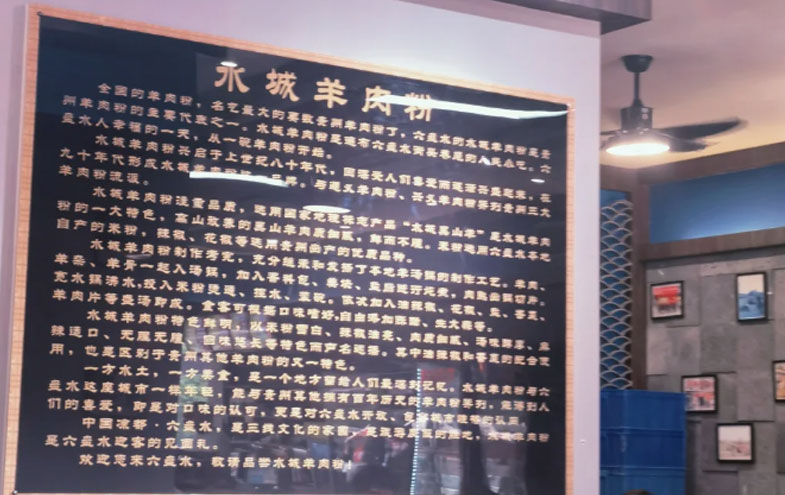 水城羊肉粉
全国的羊肉粉，名气最大的要数贵州羊肉粉了，六盘水的水城羊肉粉是贵
州羊肉粉的主要代表之一。水城羊肉粉是遍布六盘水街头巷尾的人民小吃。六
盘水人幸福的一天，从一碗羊肉粉开始。
水城羊肉粉兴启于上世纪八十年代，因深受人们喜爱而逐渐兴盛起来，在
九十年代形成水城羊肉粉品牌。与遵义羊肉粉、兴义羊肉粉并列贵州三大
羊肉粉流派。
水城羊肉粉注重品质，选用国家地理标志产品“水城黑山羊”是水城羊肉
粉的一大特色，高山放养的黑山羊肉质细腻，鲜而不膻。米粉选用六盘水本地
自产的米粉，辣椒、花椒等选用贵州出产的优质品种。
水城羊肉粉制作考究，充分继承和发扬了本地羊汤锅的制作工艺。羊肉、
羊杂、羊骨一起入汤锅，加入香料包、
宽水锅沸水，投入米粉烫透、控水、装碗。依次加入油辣椒、花椒、盐、香葱、
羊肉片等盛汤即成。食客可根据口味喜好，自由添加陈醋、生大蒜等。
水城羊肉粉特色鲜明，以米粉雪白、辣椒油亮、肉质细腻、汤味醇厚、麻
辣适口、无腥无膻、回味悠长等特色而声名远播。其中油辣椒和香葱的配合使
用，也是区别于贵州其他羊肉粉的又一特色。
一方水土，一方美食，是一个地方留给人们最深刻记忆。水城羊肉粉与六
盘水这座城市一样年轻，能与贵州其他拥有百年历史的羊肉粉并列，受得到人
们的喜爱，即是对口味的认可，更是对六盘水开放、包容城市性格的认同。
中国凉都·六盘水，是三线文化的家园，是胜地，水城羊肉粉
是六盘水迎客的见面礼。
欢迎您来六盘水，敬请品尝水城羊肉粉！